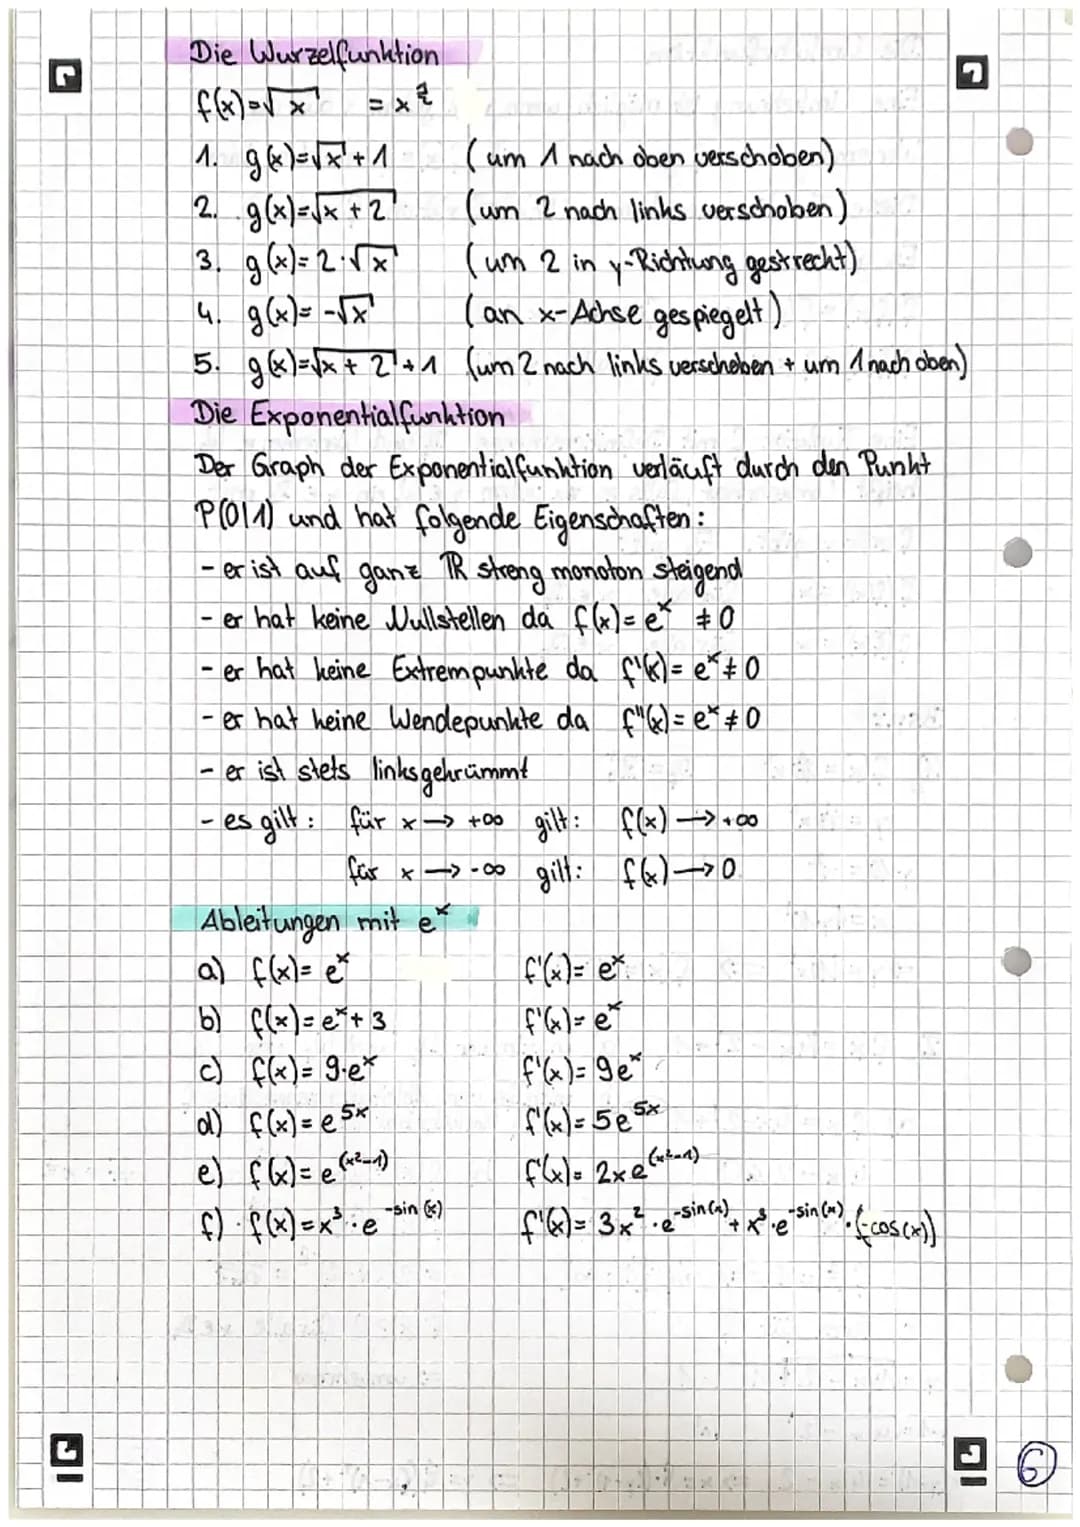 Die Wurzelfunktion
f(x)=√x = x^½
1. g(x)=√x+1 (um 1 nach oben verschoben)
2. g(x)=√(x+2) (um 2 nach links verschoben)
3. g(x)=2·√x (um 2 in y-Richtung gestreckt)
4. g(x)= -√x (an x-Achse gespiegelt)
5. g(x)=√(x+2)+1 (um 2 nach links verschoben + um 1 nach oben)
Die Exponentialfunktion
Der Graph der Exponentialfunktion verläuft durch den Punkt
P(0|1) und hat folgende Eigenschaften:
- er ist auf ganz ℝ streng monoton steigend
- er hat keine Nullstellen da f(x)= e^x ≠ 0
- er hat keine Extrempunkte da f'(x)= e^x ≠ 0
- er hat keine Wendepunkte da f''(x)= e^x ≠ 0
- er ist stets linksgekrümmt
- es gilt: für x → +∞ gilt: f(x) → +∞
für x → -∞ gilt: f(x) → 0
Ableitungen mit e^x
a) f(x)= e^x f'(x)= e^x
b) f(x)= e^x + 3 f'(x)= e^x
c) f(x)= 9·e^x f'(x)= 9e^x
d) f(x)= e^5x f'(x)= 5e^5x
e) f(x)= e^(x²-1) f'(x)= 2xe^(x²-1)
f) f(x)= x³·e^-sin(x) f'(x)= 3x²·e^-sin(x) + x³·e^-sin(x)·(-cos(x))
6